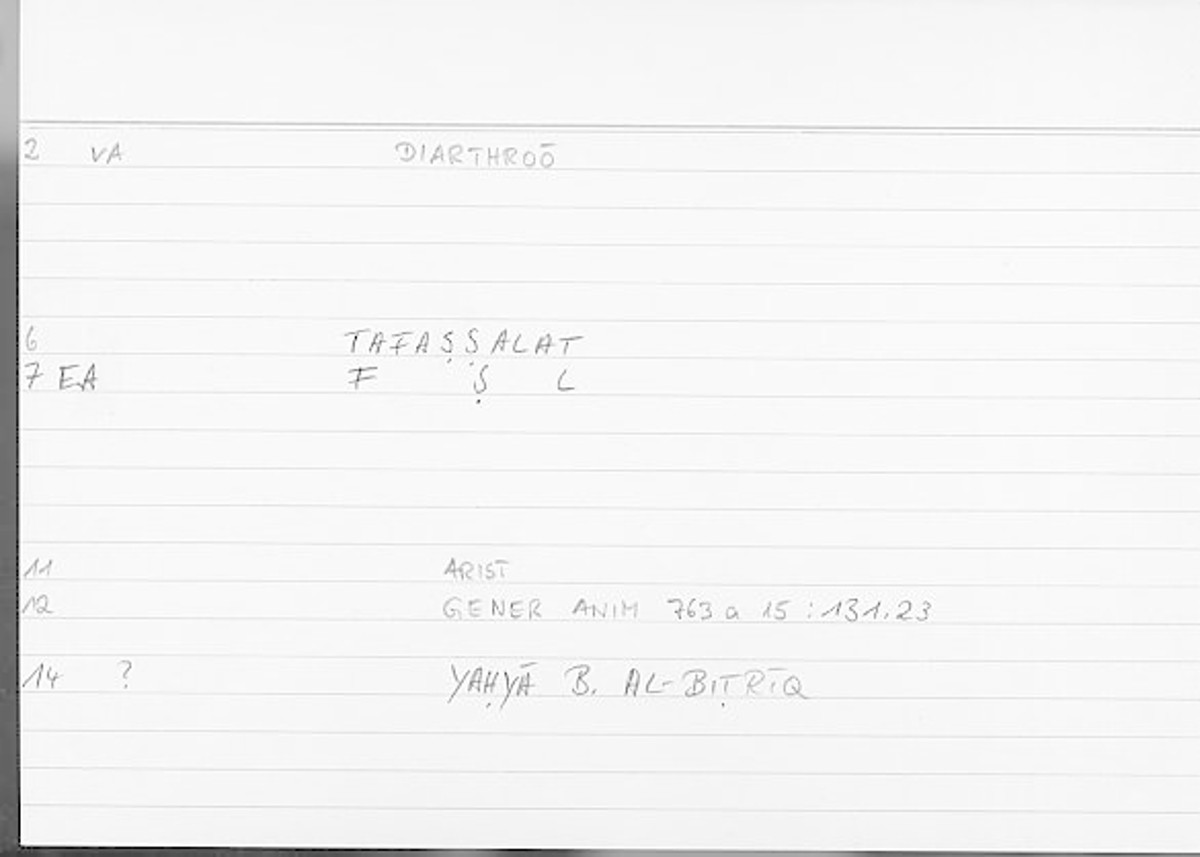 2 VA DIARTHROŌ
6 TAFAṢṢALAT
7 EA F Ṣ L
11 ARIST
12 GENER ANIM 763 a 15 : 131.23
14 ? YAḤYĀ B. AL-BIṬRĪQ